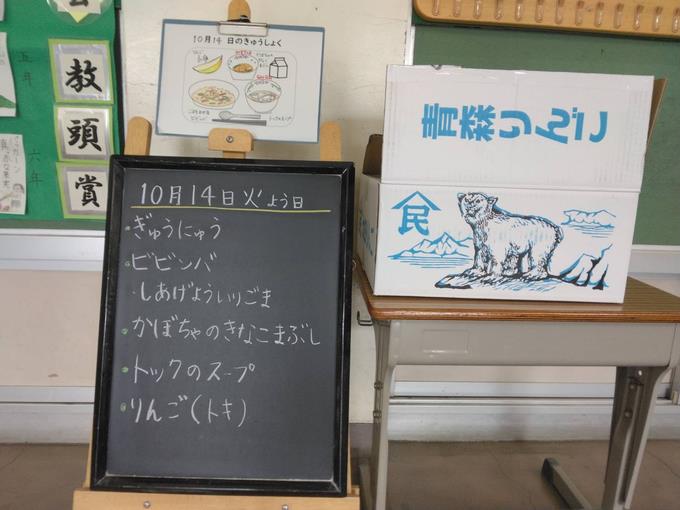 教
頭
賞
五年
六年
10月14日のきゅうしょく
青森りんご
民
10月14日火よう日
・ぎゅうにゅう
・ビビンバ
・しあげよういりごま
・かぼちゃのきなこまぶし
・トックのスープ
・りんご(トキ)